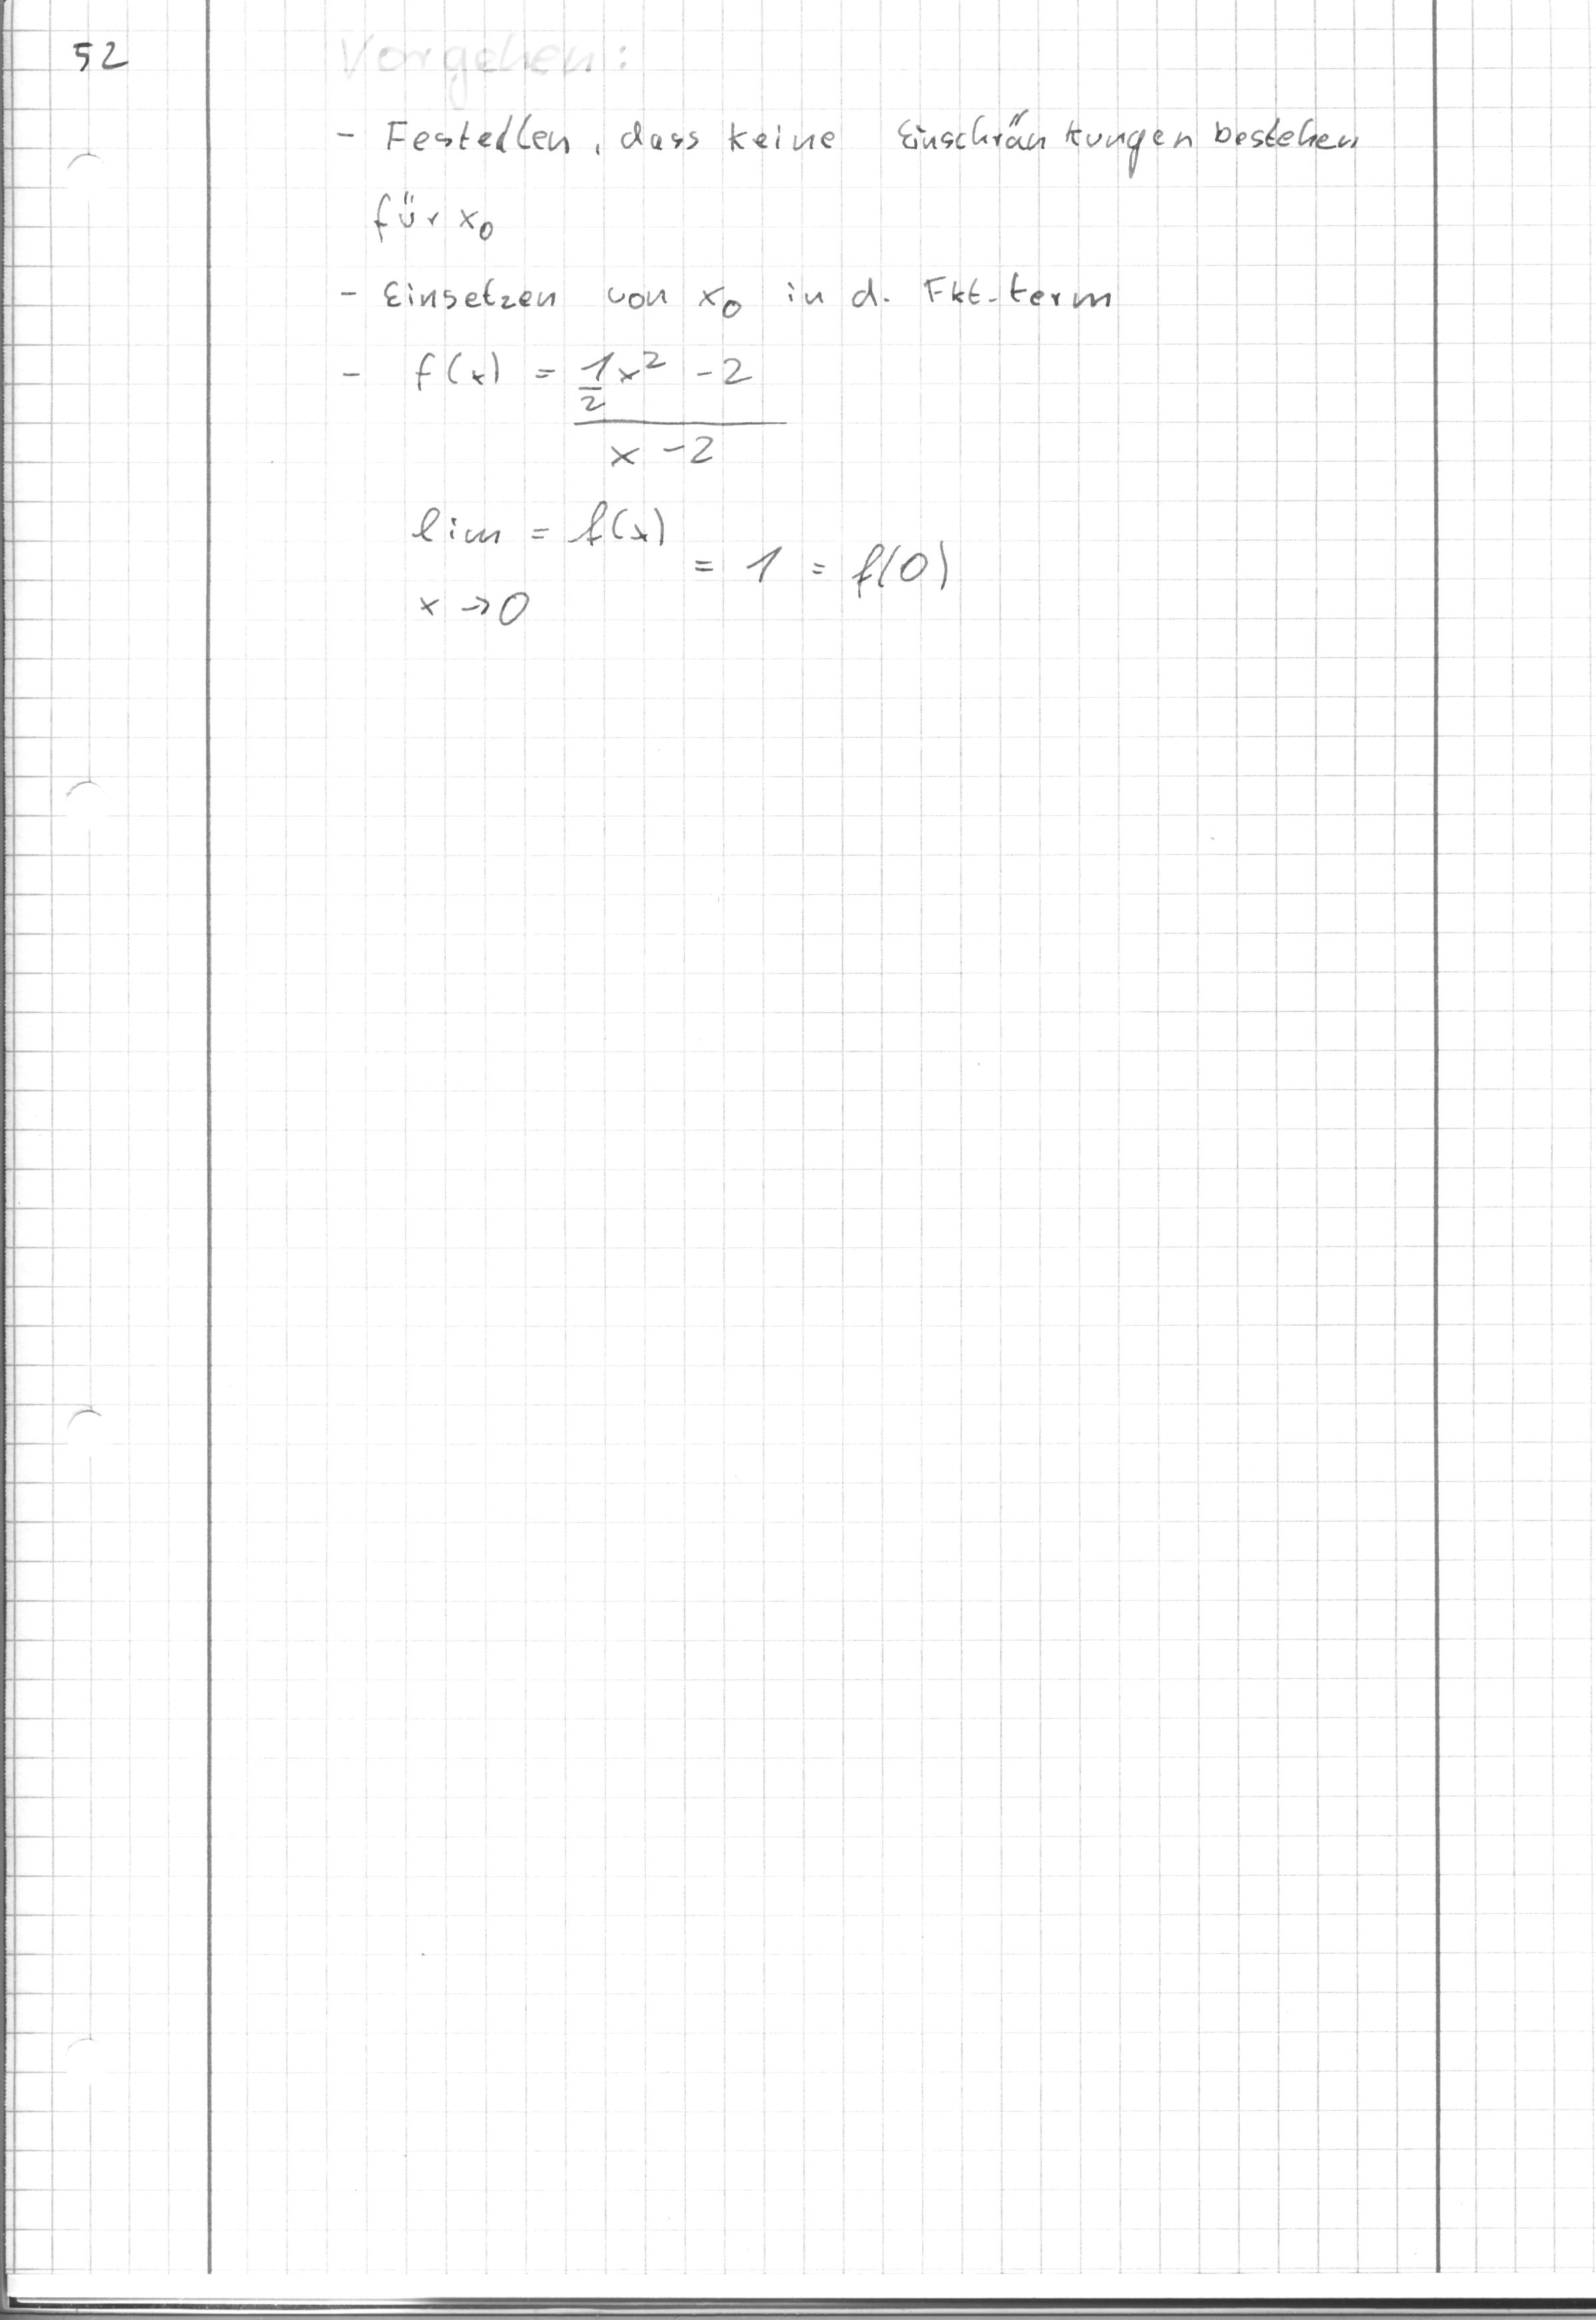 52
Vorgehen:
- Festellen, dass keine Einschränkungen bestehen
für x₀
- Einsetzen von x₀ in d. Fkt-term
- f(x) = 1/2 x² - 2
x - 2
lim = f(x)
= 1 = f(0)
x → 0